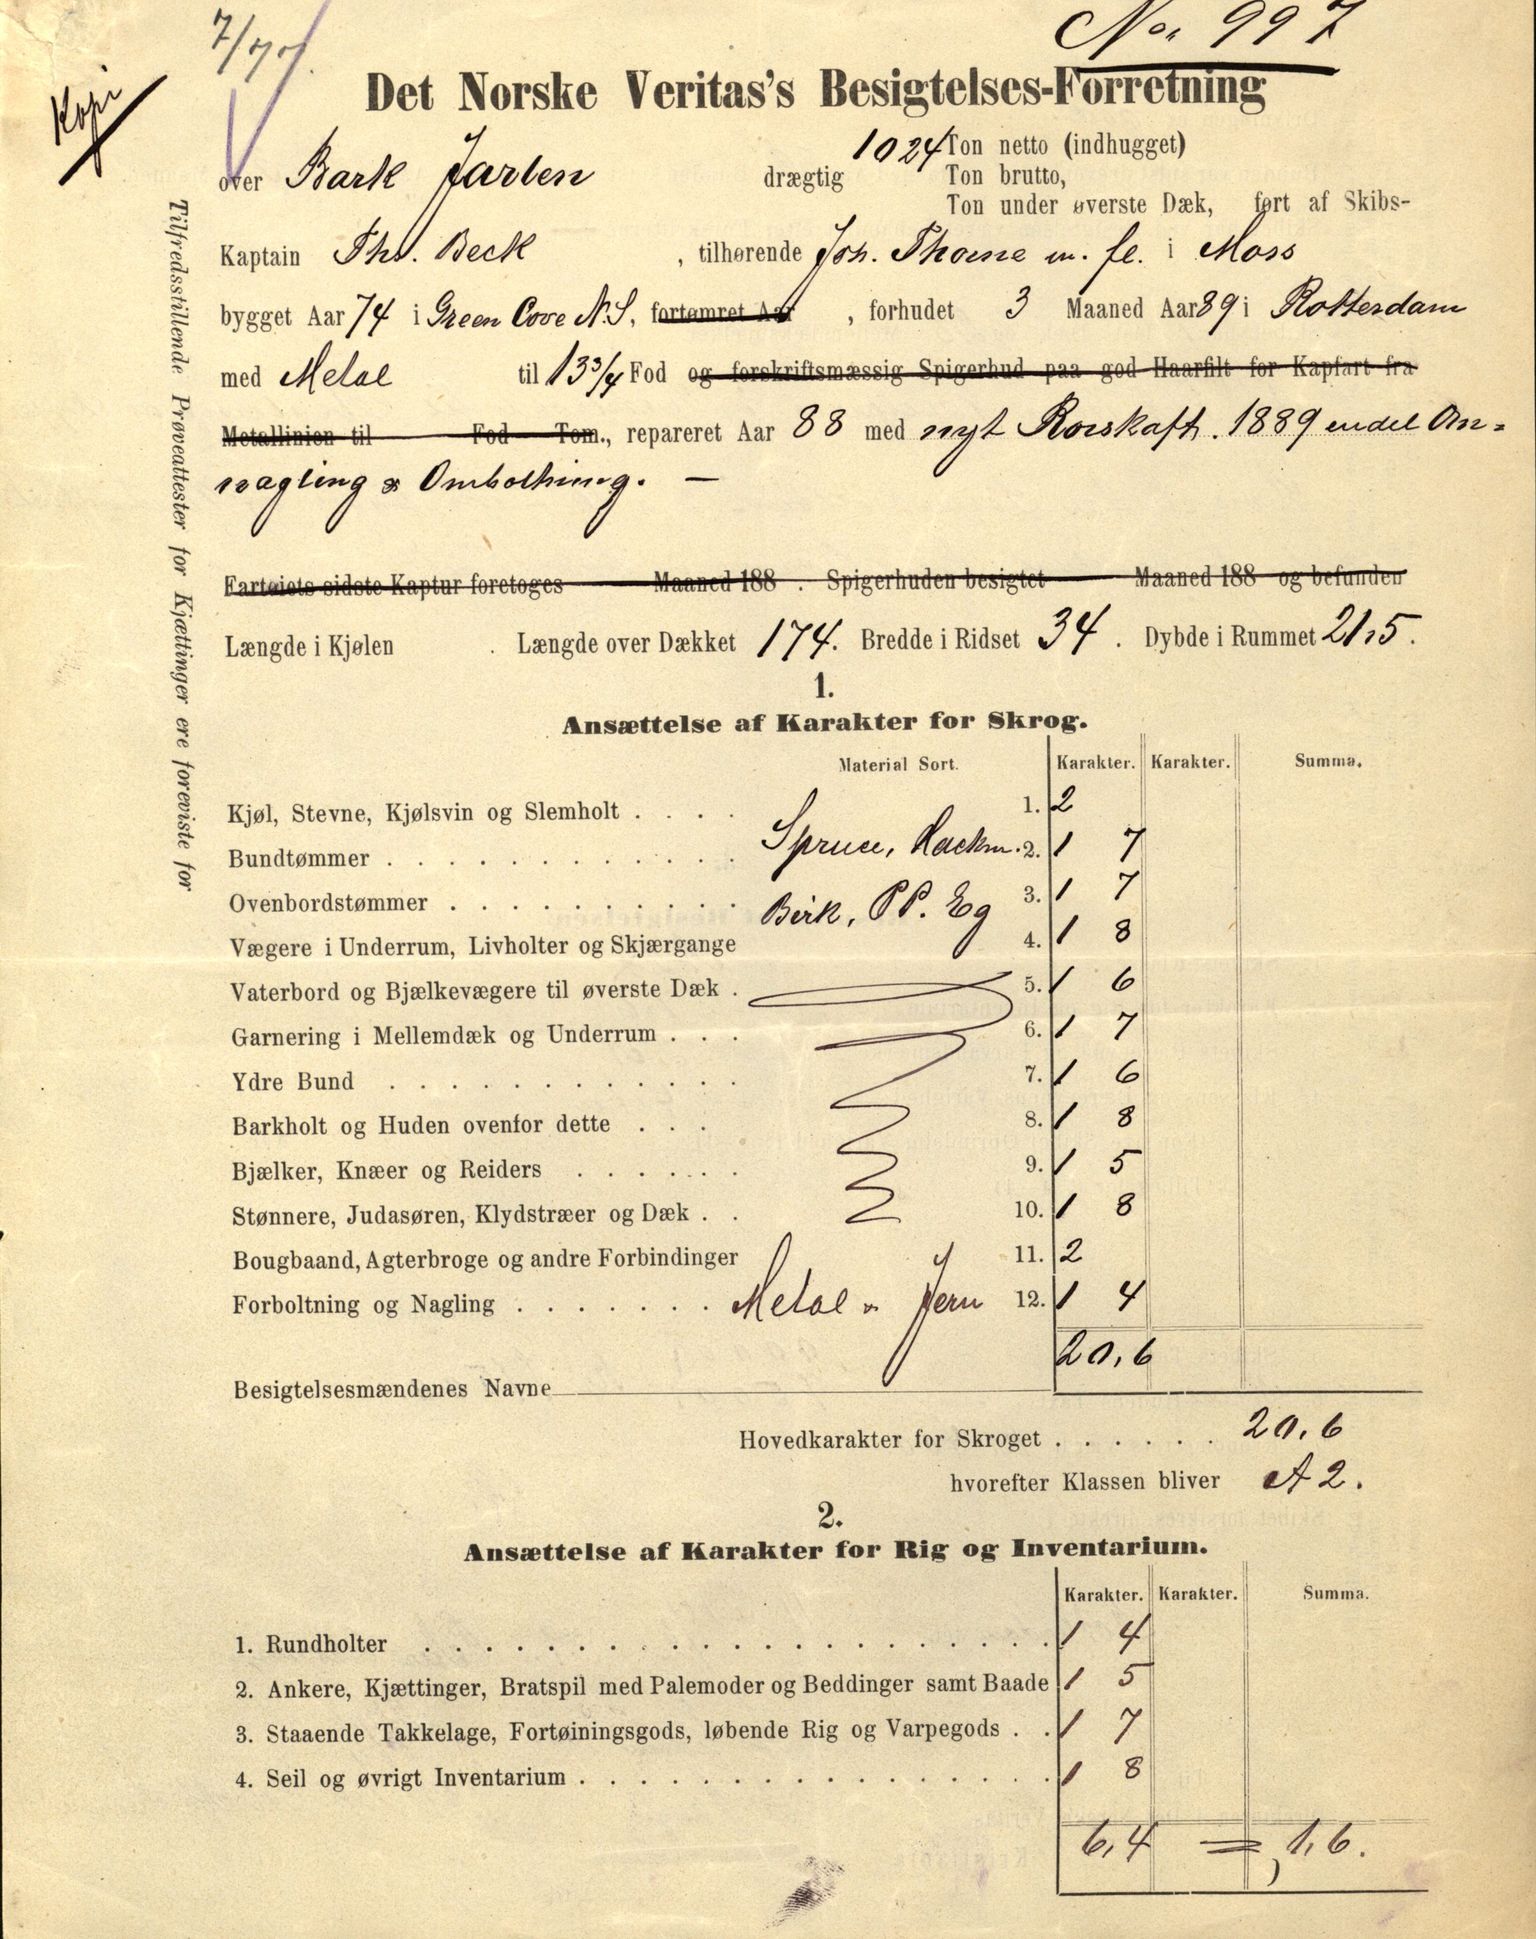 7/77.
No. 997
Kopi
Det Norske Veritas's Besigtelses-Forretning
over Bark Jarlen drægtig 1024 Ton netto (indhugget)
Ton brutto,
Ton under øverste Dæk, ført af Skibs-
Kaptain Ths. Beck , tilhørende Joh. Thorne m. fl. i Moss
bygget Aar 74 i Green Cove N.S, fortømret Aar , forhudet 3 Maaned Aar 89 i Rotterdam
med Metal til 13 3/4 Fod og forskriftsmæssig Spigerhud paa god Haarfilt for Kapfart fra
Metallinien til Fod Tom., repareret Aar 88 med nyt Rorskaft. 1889 endel Om=
nagling & Ombolthing. —
Fartøiets sidste Kaptur foretoges Maaned 188 . Spigerhuden besigtet Maaned 188 og befunden
Længde i Kjølen . Længde over Dækket 174. Bredde i Ridset 34 . Dybde i Rummet 21,5.
Tilfredsstillende Prøveattester for Kjættinger ere foreviste for
1.
Ansættelse af Karakter for Skrog.
Material Sort. Karakter. Karakter. Summa.
Kjøl, Stevne, Kjølsvin og Slemholt . . . . 1. 2
Bundtømmer . . . . . . . . . . . . Spruce, Hackm. 2. 1 7
Ovenbordstømmer . . . . . . . . . . Birk, PP. Eg 3. 1 7
Vægere i Underrum, Livholter og Skjærgange 4. 1 8
Vaterbord og Bjælkevægere til øverste Dæk . 5. 1 6
Garnering i Mellemdæk og Underrum . . . 6. 1 7
Ydre Bund . . . . . . . . . . . . 7. 1 6
Barkholt og Huden ovenfor dette . . . 8. 1 8
Bjælker, Knæer og Reiders . . . . . . 9. 1 5
Stønnere, Judasøren, Klydstræer og Dæk . . 10. 1 8
Bougbaand, Agterbroge og andre Forbindinger 11. 2
Forboltning og Nagling . . . . . . . Metal & Jern 12. 1 4
20,6
Besigtelsesmændenes Navne
Hovedkarakter for Skroget . . . . . . 20,6
hvorefter Klassen bliver A 2.
2.
Ansættelse af Karakter for Rig og Inventarium.
Karakter. Karakter. Summa.
1. Rundholter . . . . . . . . . . . . . . . . . . . . 1 4
2. Ankere, Kjættinger, Bratspil med Palemoder og Beddinger samt Baade 1 5
3. Staaende Takkelage, Fortøiningsgods, løbende Rig og Varpegods . . 1 7
4. Seil og øvrigt Inventarium . . . . . . . . . . . . . . . 1 8
6,4 = 1,6.